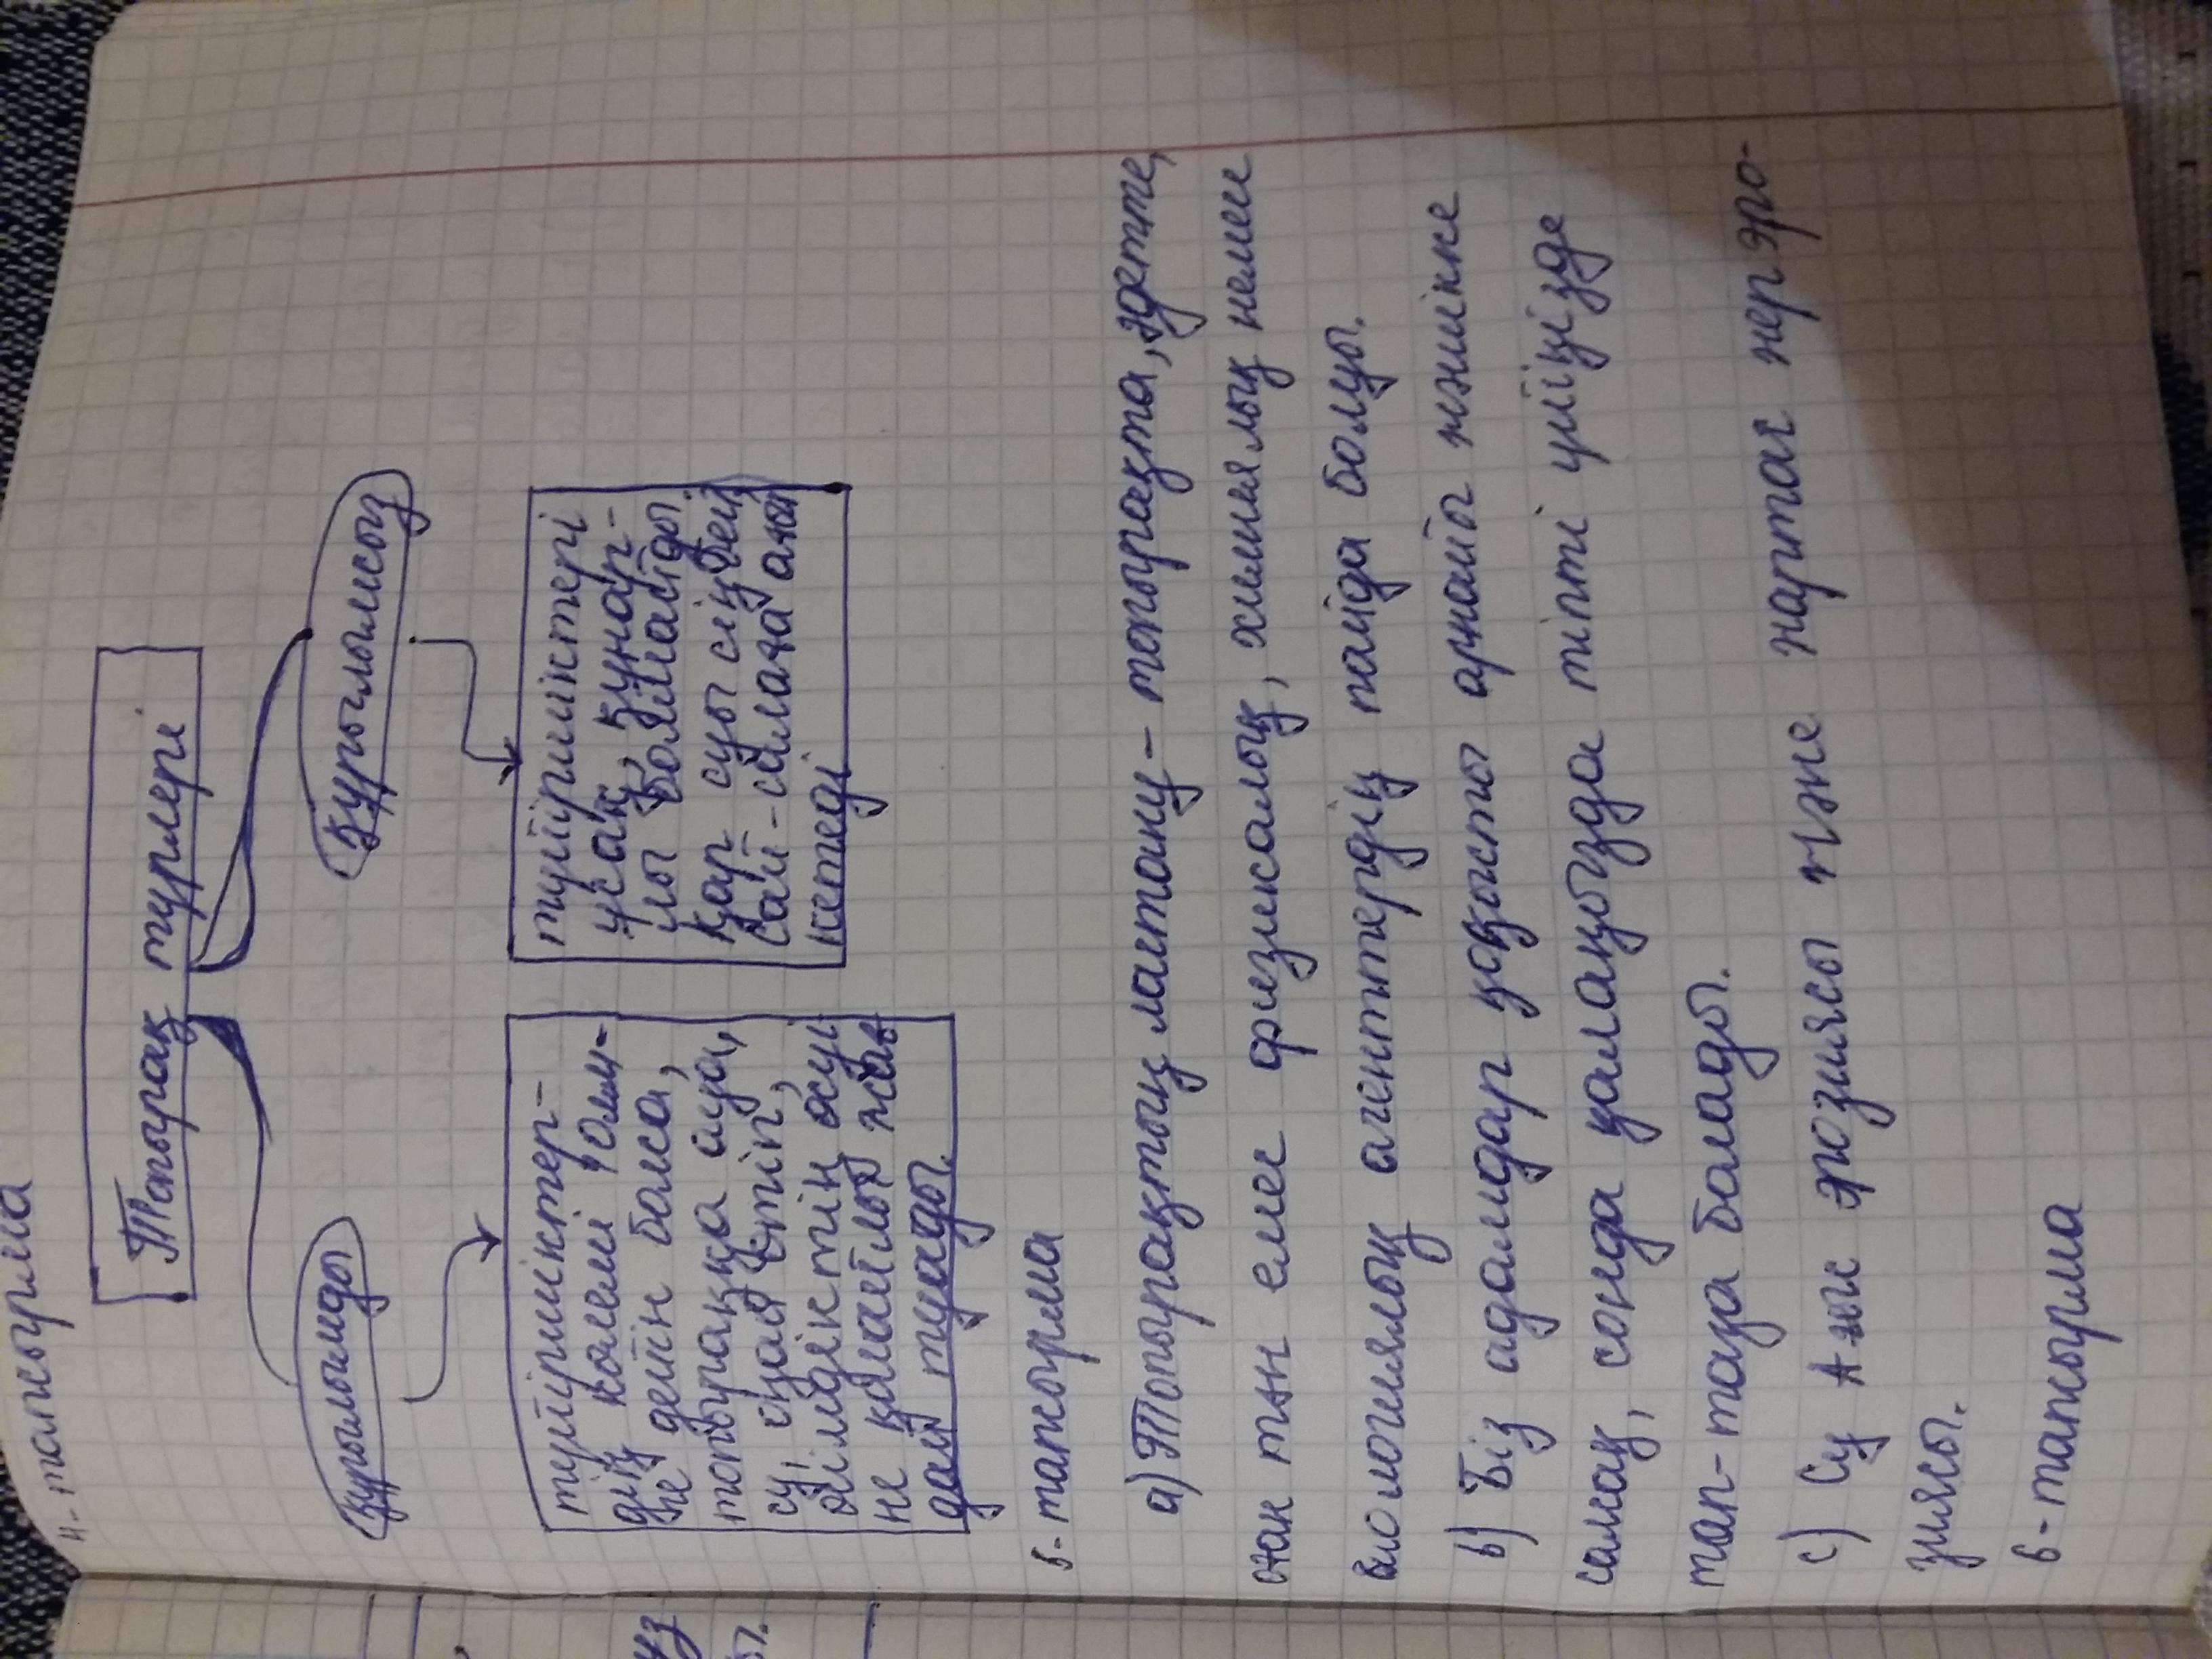 4-тапсырма
Топырақ түрлері
Құрылымды
Құрылымсыз
түйіршіктер-
дің көлемі 10мм-
ге дейін болса,
топыраққа ауа,
су, оңай өтіп,
өсімдіктің өсуі
не қолайлы жағ
дай туады.
түйіршіктері
ұсақ, құнар-
лы болмайды.
Қар суы сіңбей,
сай-салаға ағып
кетеді
5-тапсырма
а) Топырақтың ластану- топырақта, әдетте,
оған тән емес физикалық, химиялық немесе
биологиялық агенттердің пайда болуы.
в) Біз адамдар қоқысты арнайы жәшікке
салсақ, сонда қаламызда тіпті үйімізде
тап-таза болады.
с) Су эрозиясы және нартас жер эро-
зиясы.
6-тапсырма